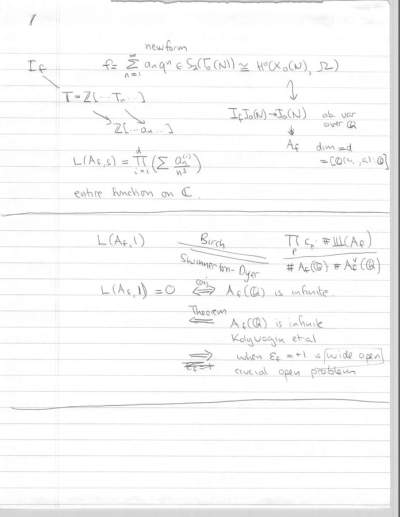 1
newform
I_f f = ∑_{n=1}^∞ a_n q^n ∈ S_2(Γ_0(N)) ≅ H^0(X_0(N), Ω)
T = Z[...T_n...]
I_f J_0(N) → J_0(N) ab. var over Q
Z[...a_n...]
A_f dim = d
L(A_f, s) = ∏_{i=1}^d (∑ a_n^{(i)} / n^s)
= [Q(a_1, ...):Q]
entire function on C.
L(A_f, 1) Birch ∏_p c_p · #Ш(A_f)
Swinnerton-Dyer #A_f(Q) #A_f^∨(Q)
L(A_f, 1) = 0 conj ⟺ A_f(Q) is infinite.
Theorem
⟸ A_f(Q) is infinite
Kolyvagin et al
⟹ when ε_f = +1 is wide open
crucial open problem